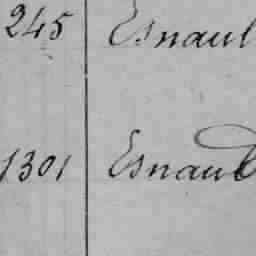 245 Esnaul
1301 Esnaul